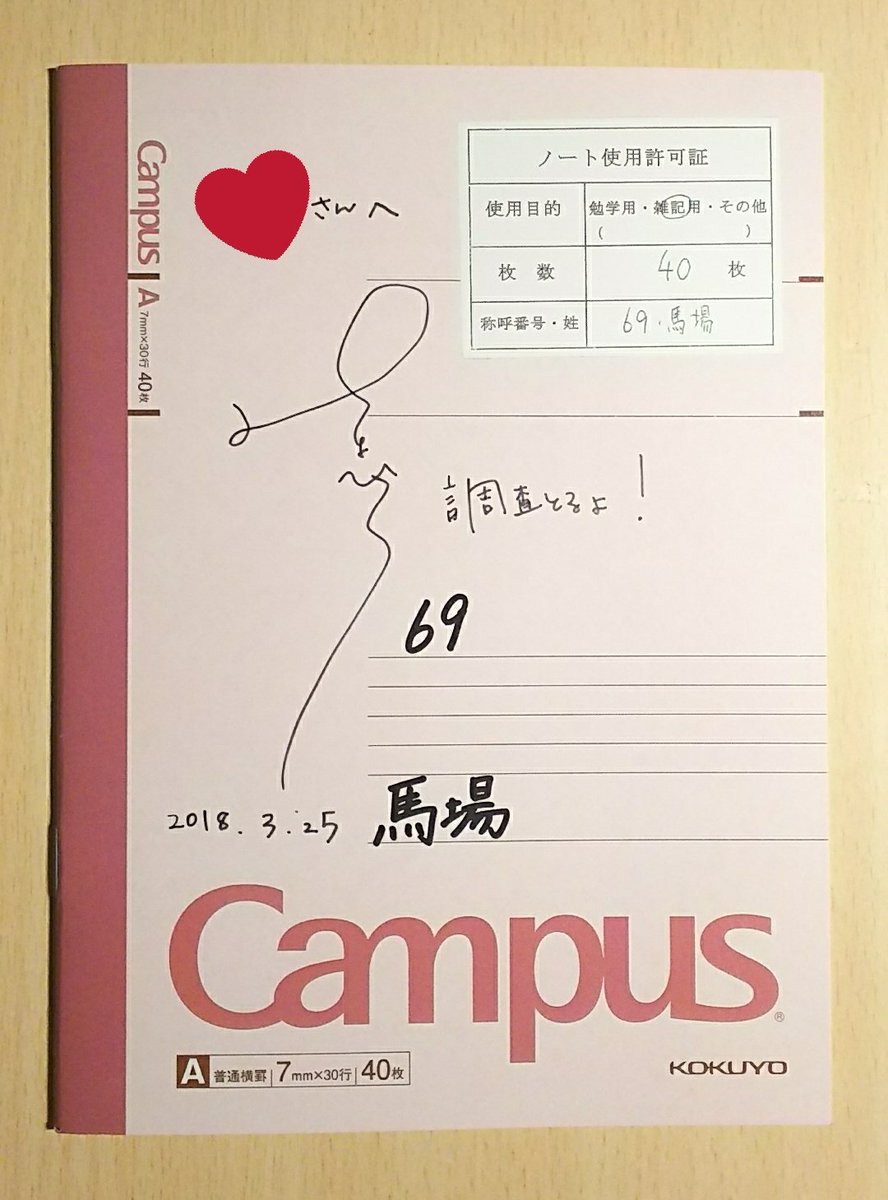 Campus
A 7mm×30行 40枚
さんへ
ノート使用許可証
使用目的 勉学用・雑記用・その他
( )
枚数 40 枚
称呼番号・姓 69.馬場
調査とるよ!
69
2018.3.25 馬場
Campus®
A 普通横罫 7mm×30行 40枚
KOKUYO